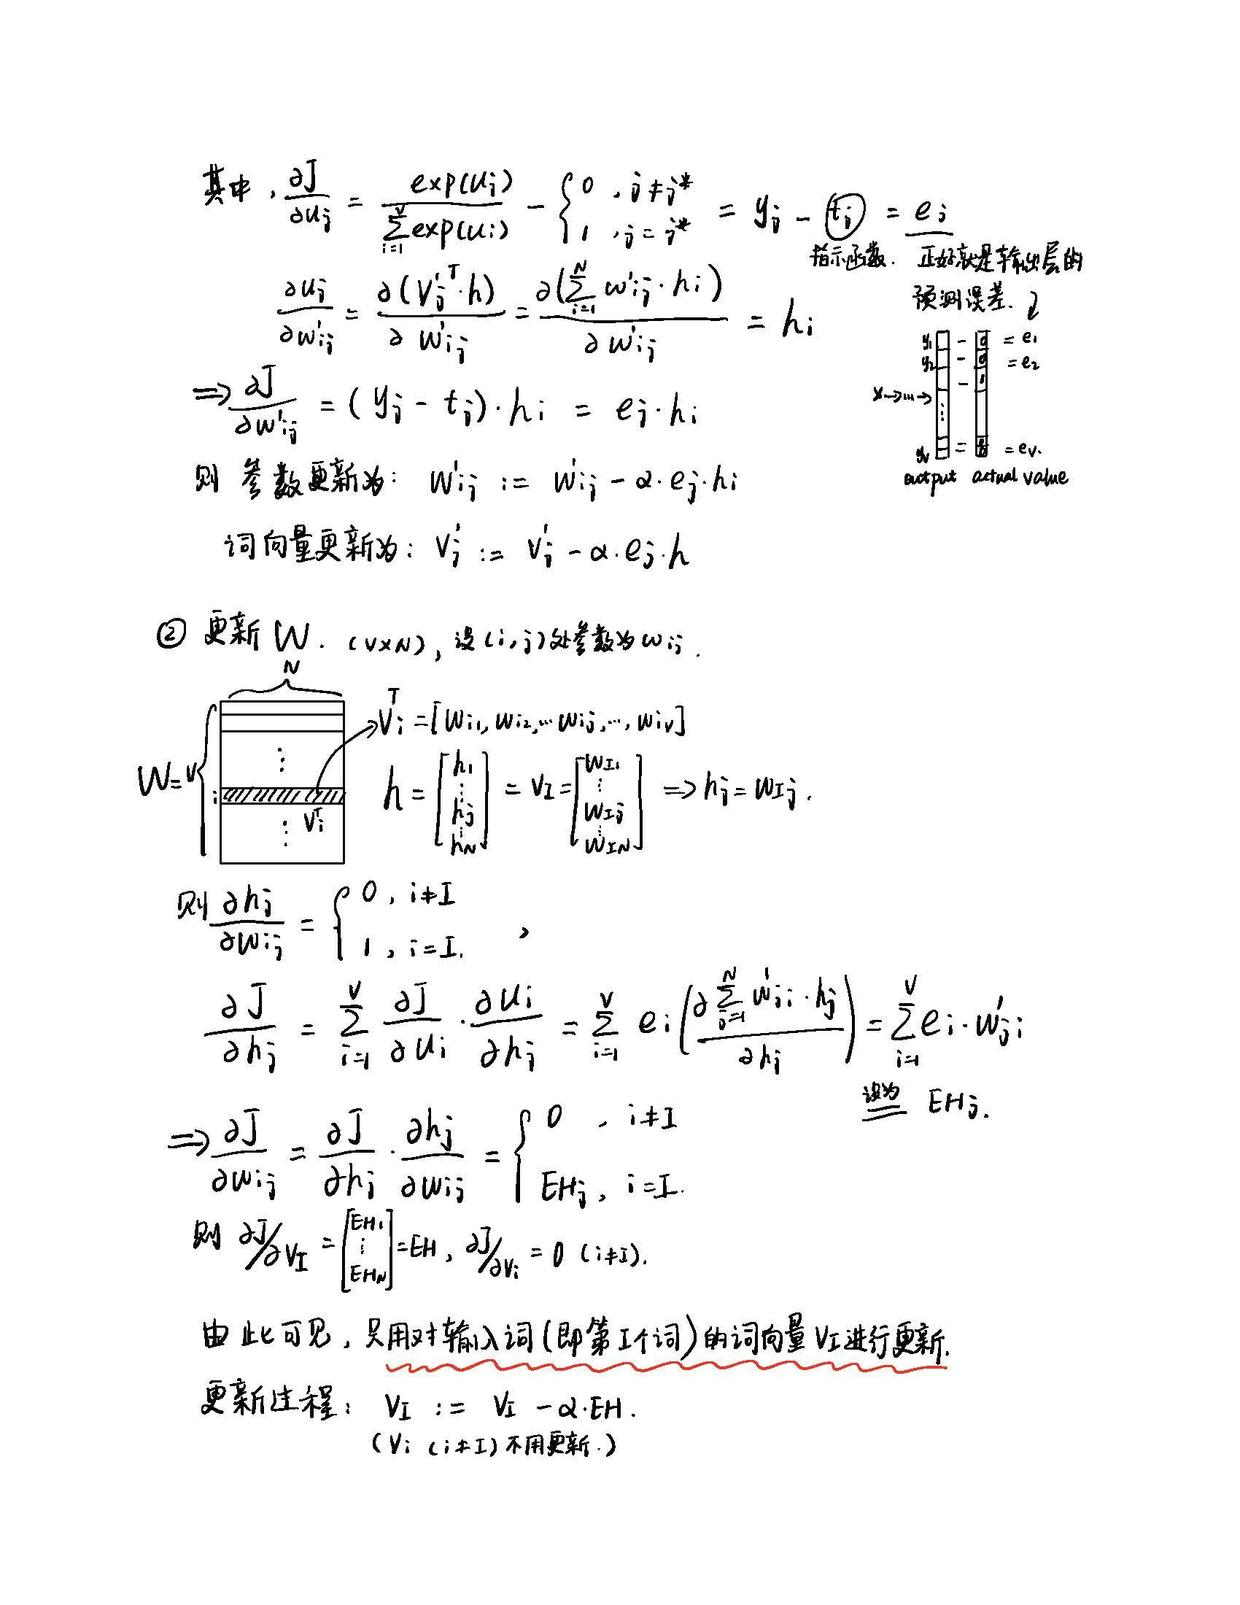 其中, ∂J/∂uj = exp(uj) / Σ_{i=1}^{V} exp(ui) − { 0, j≠j* ; 1, j=j* } = yj − tj = ej
指示函数. 正好就是输出层的
预测误差.
∂uj/∂w'ij = ∂(V'j^T·h)/∂w'ij = ∂(Σ_{i=1}^{N} w'ij·hi)/∂w'ij = hi
y1 − 0 = e1
y2 − 0 = e2
− 1
x→…→ ⋮
yV = eV.
output actual value
⇒ ∂J/∂w'ij = (yj − tj)·hi = ej·hi
则 参数更新为: w'ij := w'ij − α·ej·hi
词向量更新为: V'j := V'j − α·ej·h
② 更新 W. (V×N), 设(i,j)处参数为wij.
N
W= V i Vi^T
Vi^T = [wi1, wi2, … wij, …, wiV]
h = [h1 ⋮ hj ⋮ hN] = VI = [wI1 ⋮ wIj ⋮ wIN] ⇒ hj = wIj.
则 ∂hj/∂wij = { 0, i≠I ; 1, i=I. ,
∂J/∂hj = Σ_{i=1}^{V} ∂J/∂ui · ∂ui/∂hj = Σ_{i=1}^{V} ei (∂Σ_{j=1}^{N} w'ji·hj / ∂hj) = Σ_{i=1}^{V} ei·w'ji
设为 EHj.
⇒ ∂J/∂wij = ∂J/∂hj · ∂hj/∂wij = { 0, i≠I ; EHj, i=I.
则 ∂J/∂VI = [EH1 ⋮ EHN] = EH, ∂J/∂Vi = 0 (i≠I).
由此可见, 只用对输入词(即第I个词)的词向量VI进行更新.
更新过程: VI := VI − α·EH.
(Vi (i≠I) 不用更新.)